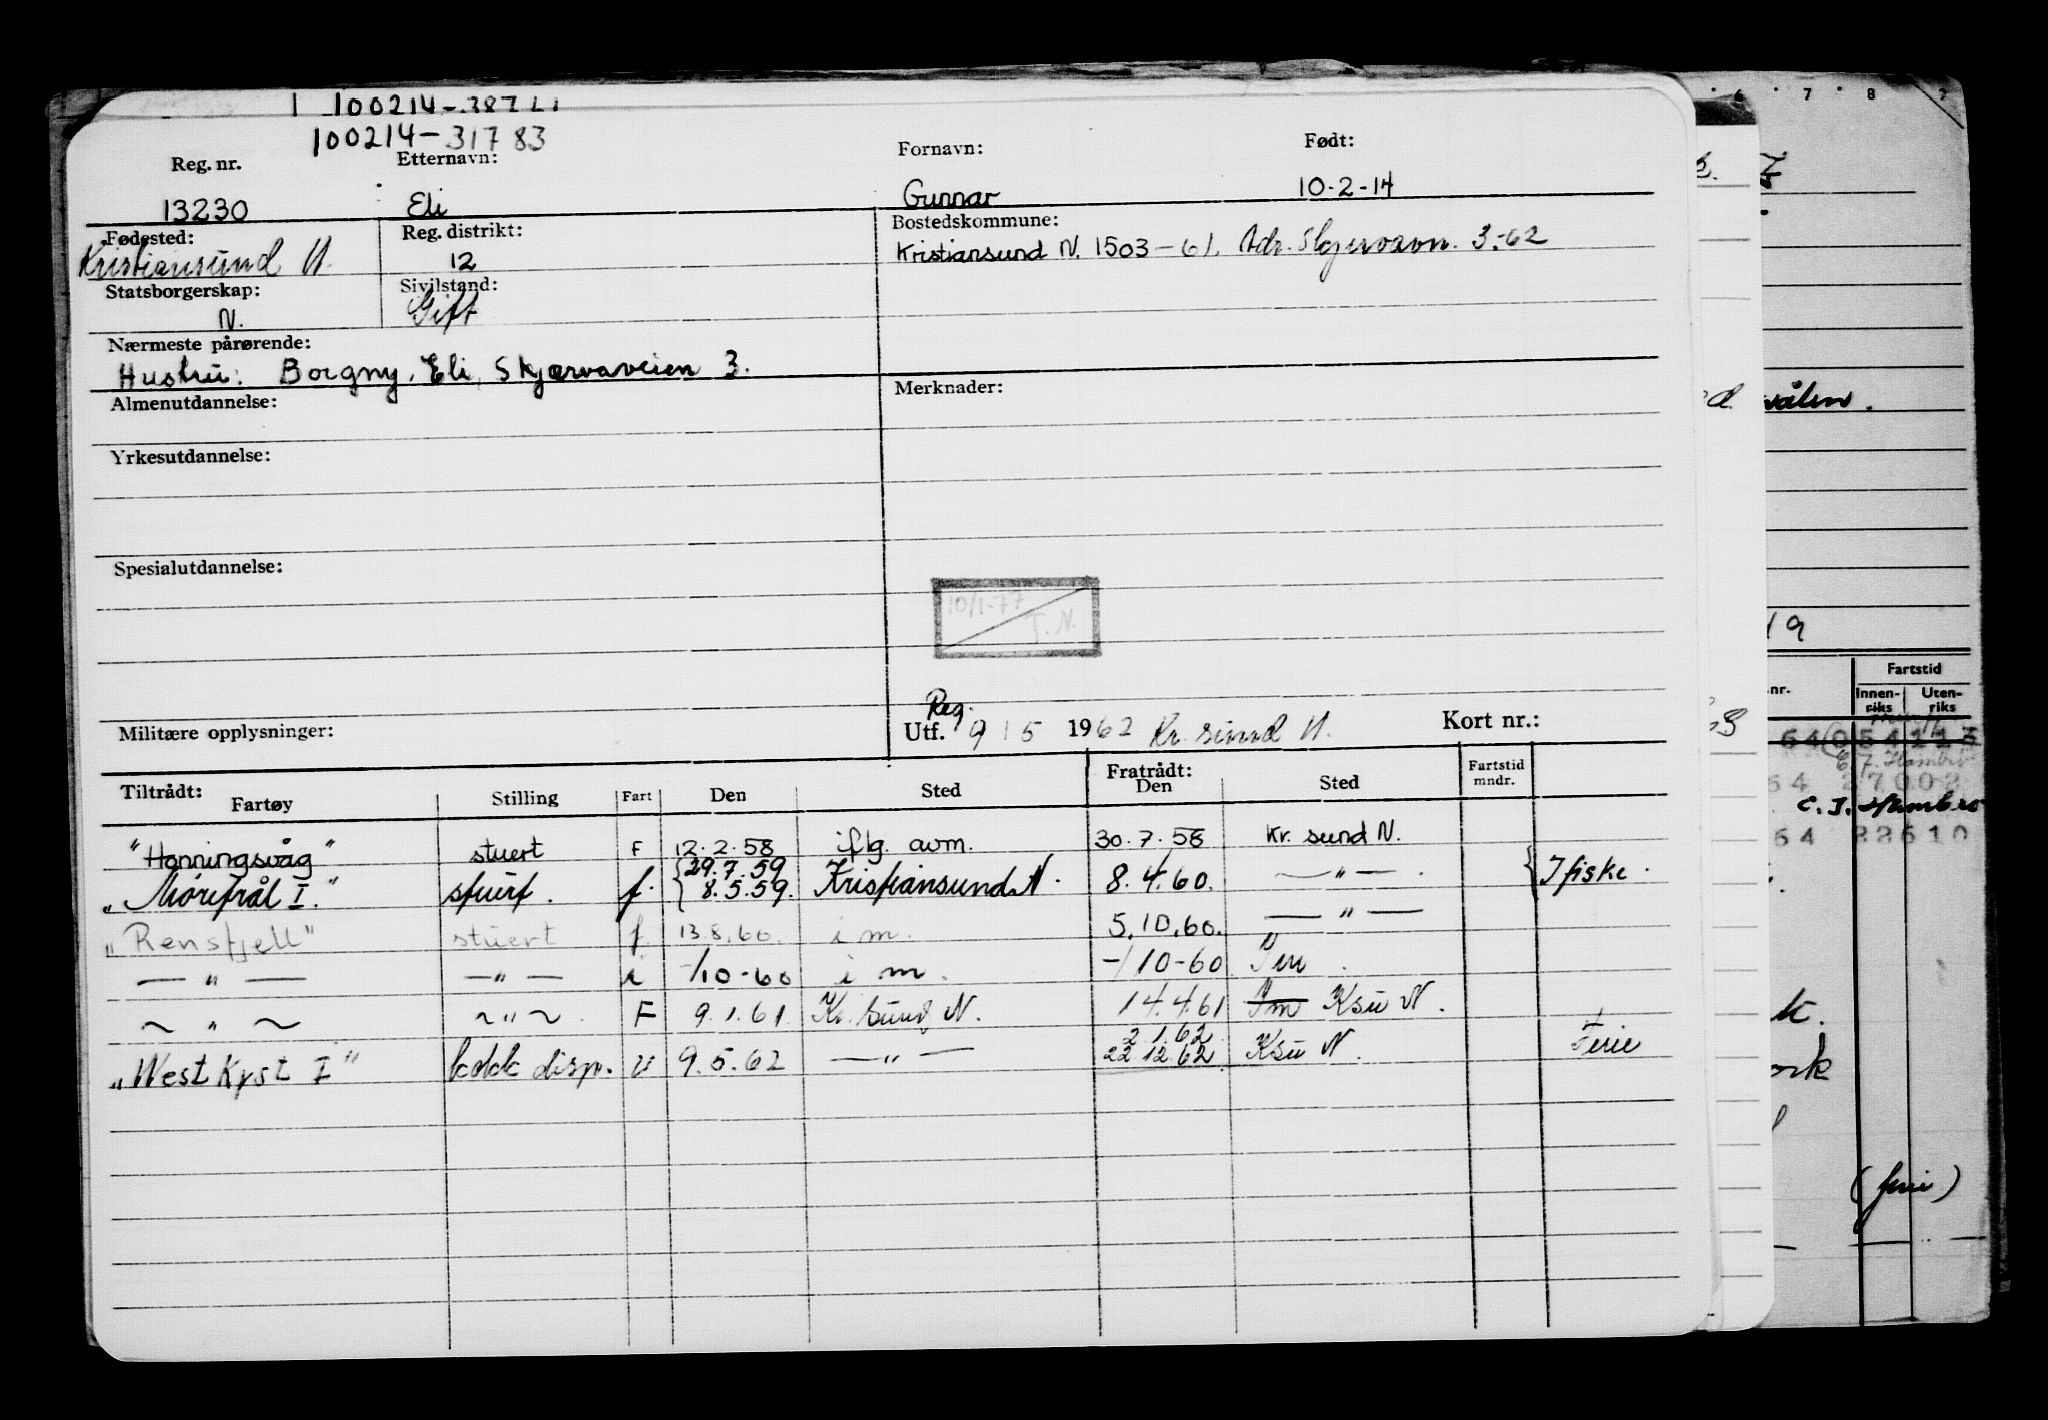 100214-31783
Reg. nr. Etternavn: Fornavn: Født:
13230 Eli Gunnar 10-2-14
Fødested: Reg. distrikt: Bostedskommune:
Kristiansund N. 12 Kristiansund N. 1503-61. Adr. 3-62
Statsborgerskap: Sivilstand:
N. Gift
Nærmeste pårørende:
Hustru: Borgny, Eli, Skjærvaveien 3.
Almenutdannelse: Merknader:
Yrkesutdannelse:
Spesialutdannelse:
10/1-77
T. N.
Reg.
Militære opplysninger: Utf. 9 / 5 1962 Kr. sund N. Kort nr.:
Tiltrådt: Fratrådt:
Fartøy Stilling Fart Den Sted Den Sted Fartstid mndr.
"Honningsvåg" stuert F 12.2.58 iflg. avm. 30.7.58 Kr. sund N.
29.7.59
"Møretrål I." stuert. f. 8.5.59. Kristiansund N. 8.4.60. — " — . I fiske.
"Rensfjell" stuert f 13.8.60. i m. 5.10.60. — " —
— " — — " — i -/10-60 i m. -/10-60
~ " ~ ~ " ~ F 9.1.61 Kr. sund N. 14.4.61 Im Ksu N.
2.1.62
"West Kyst I" kokk disp. u 9.5.62 — " — 22.12.62 Ksu N. Ferie
6 7 8
19
nr. Fartstid
Innenriks Utenriks
64 27002
C. J. Hambro
64 22610
(ferie)